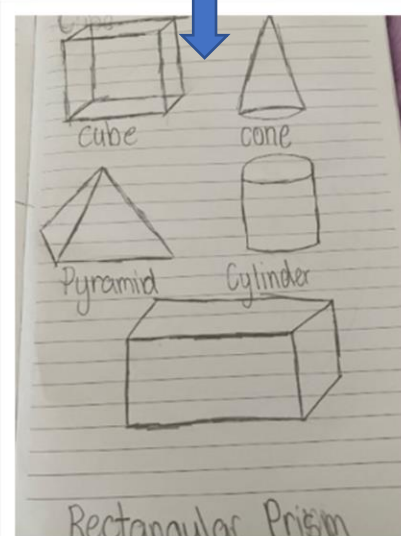 Cube
cube cone
Pyramid Cylinder
Rectangular Prism